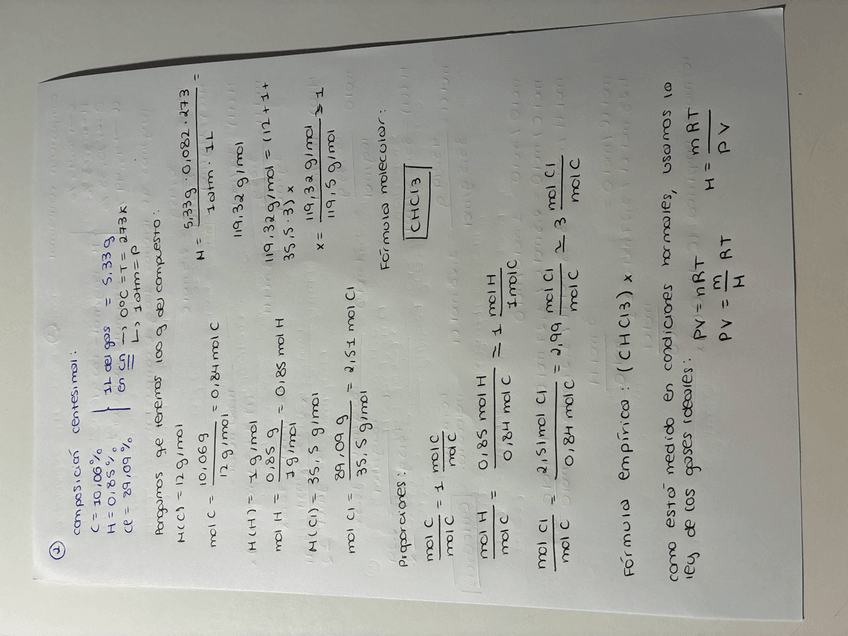 ②
composición centesimal:
C = 10,06%
H = 0,85%
Cl = 89,09 %
1L del gas = 5,33 g
en CN → 0ºC = T = 273K
↳ 1atm = P
Pongamos qe tenemos 100 g del compuesto:
M(C) = 12 g/mol
mol C = 10,06 g / 12 g/mol = 0,84 mol C
M(H) = 1 g/mol
mol H = 0,85 g / 1 g/mol = 0,85 mol H
M(Cl) = 35,5 g/mol
mol Cl = 89,09 g / 35,5 g/mol = 2,51 mol Cl
Proporciones:
mol C / mol C = 1 mol C / mol C
mol H / mol C = 0,85 mol H / 0,84 mol C ≃ 1 mol H / 1 mol C
mol Cl / mol C = 2,51 mol Cl / 0,84 mol C = 2,99 mol Cl / mol C ≃ 3 mol Cl / mol C
Fórmula empírica: (CHCl3)x
como está medido en condiciones normales, usamos la
ley de los gases ideales:
PV = nRT
PV = m/M RT
M = mRT / PV
M = 5,33g · 0,082 · 273 / 1atm · 1L =
119,32 g/mol
119,32 g/mol = (12 + 1 +
35,5 · 3) x
x = 119,32 g/mol / 119,5 g/mol ≃ 1
Fórmula molecular:
CHCl3